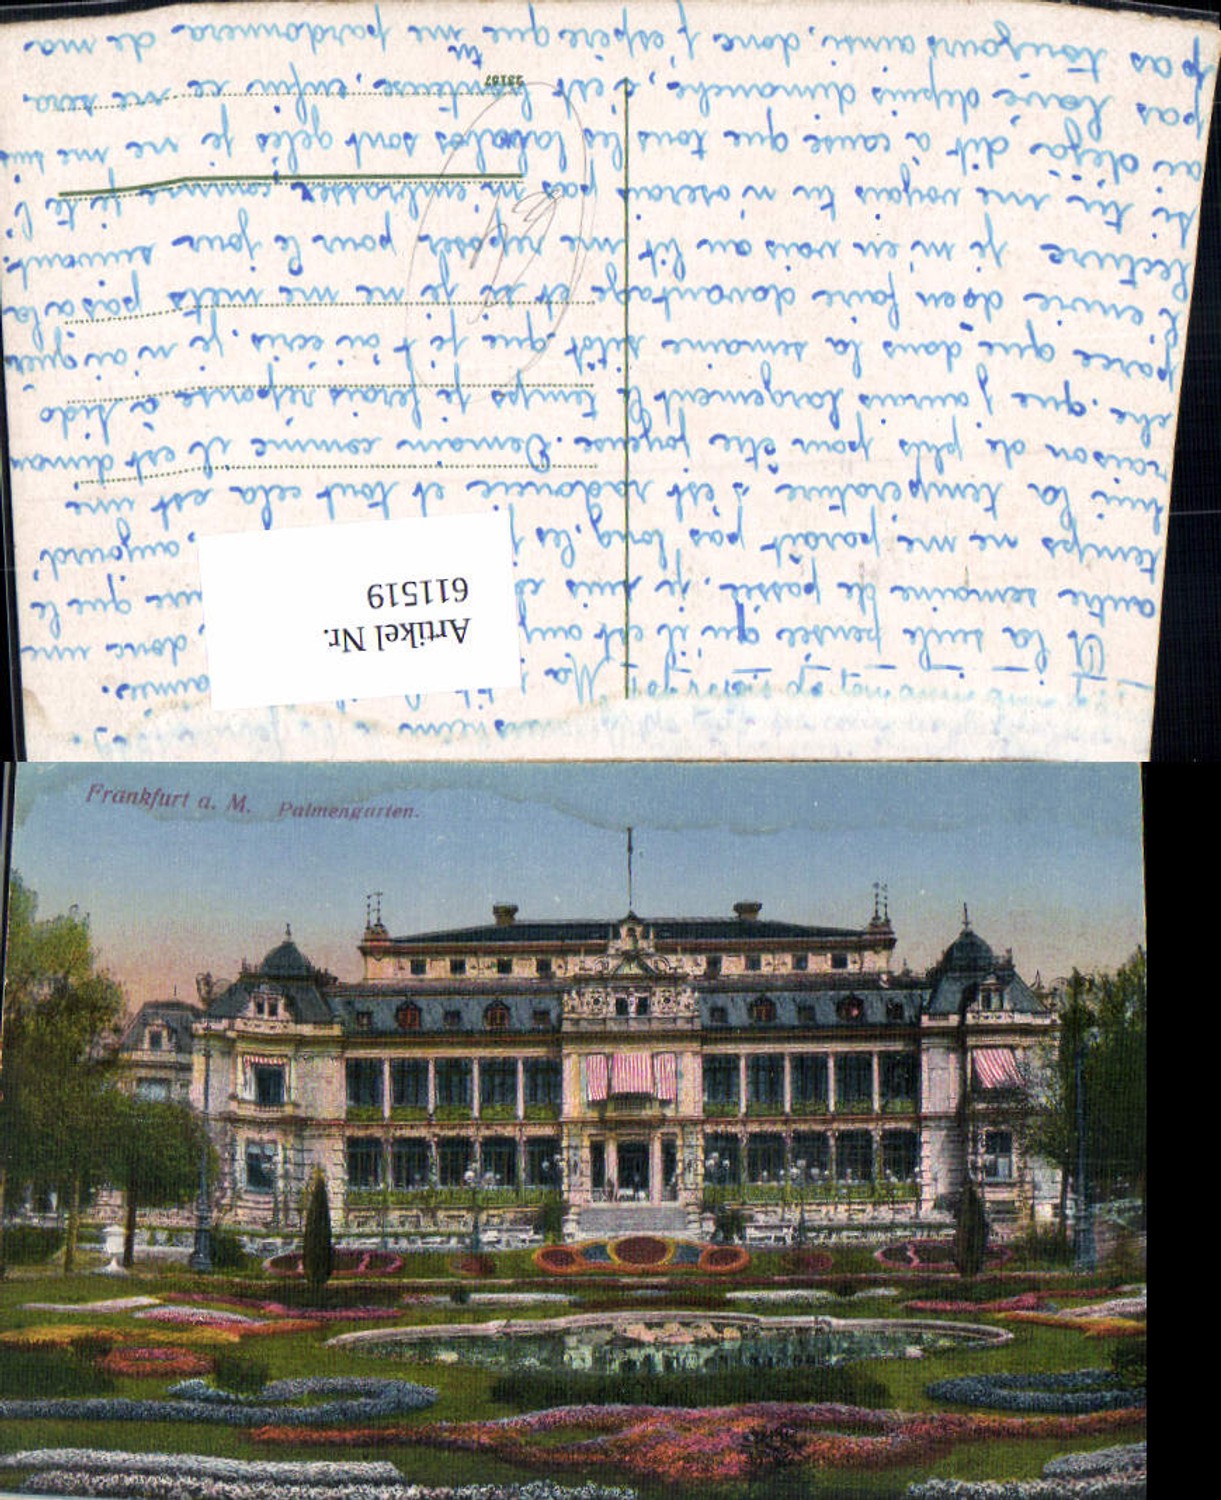 Ma
aimée.
Et la seule pensée qu'il est donc une
autre semaine de passée, je suis que le
temps ne me paraît pas long, les aujourd'
hui la température s'est radoucie et tout cela est une
raison de plus pour être joyeuse. Demain comme il est diman
che que j'aurais largement le temps je ferais réponse à Sido
parce que dans la semaine sitôt que je t'ai écris, je n'ai guère
l'envie d'en faire davantage et si je ne me mets pas à la
lecture je m'en vais au lit me reposer pour le jour suivant.
si tu me voyais tu n'oserais pas m'embrasser, comme je te l'
ai déjà dit à cause que tous les lavabos sont gelés je ne me suis
pas lavé depuis dimanche, c'est honteuse, enfin ce ne sera
pas toujours ainsi, donc j'espère que tu me pardonnera de ma
23157
Artikel Nr.
611519
Frankfurt a. M. Palmengarten.